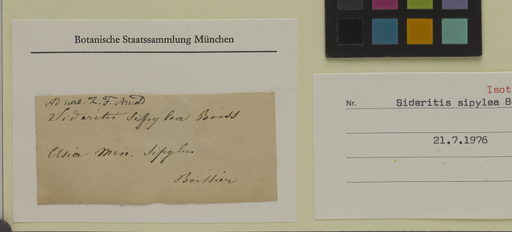 Botanische Staatssammlung München
Sideritis Sipylea Boiss
Asia Min. Sipylus
Boissier
Isot
Nr. Sideritis sipylea B
21.7.1976